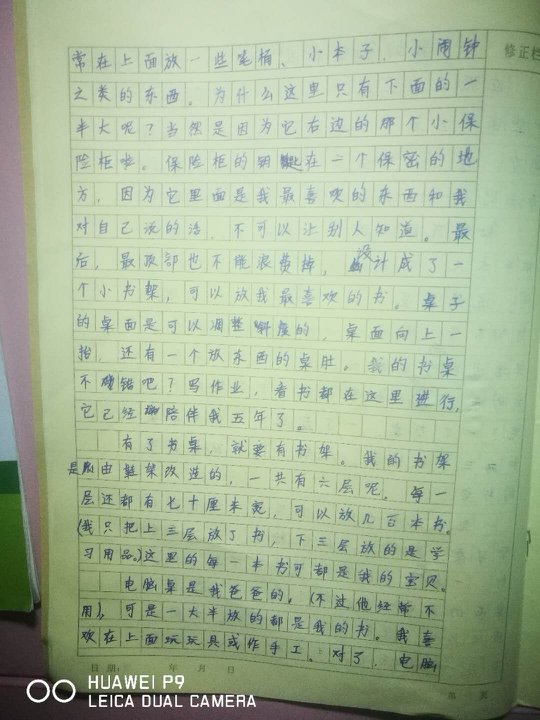 修正栏
常在上面放一些笔桶、小本子、小闹钟
之类的东西。为什么这里只有下面的一
半大呢?当然是因为它右边的那个小保
险柜啦。保险柜的钥匙在一个保密的地
方,因为它里面是我最喜欢的东西和我
对自己说的话,不可以让别人知道。最
后,最顶部也不能浪费掉,设计成了一
个小书架,可以放我最喜欢的书。桌子
的桌面是可以调整斜度的,桌面向上一
抬,还有一个放东西的桌肚。我的书桌
不错吧?写作业,看书都在这里进行,
它已经陪伴我五年了。
有了书桌,就要有书架。我的书架
是由鞋架改造的,一共有六层呢。每一
层还都有七十厘米宽,可以放几百本书。
(我只把上三层放了书,下三层放的是学
习用品。)这里的每一本书可都是我的宝贝。
电脑桌是我爸爸的,(不过他经常不
用),可是一大半放的都是我的书。我喜
欢在上面玩玩具或作手工。对了,电脑
日期: 年 月 日 第 页
HUAWEI P9
LEICA DUAL CAMERA